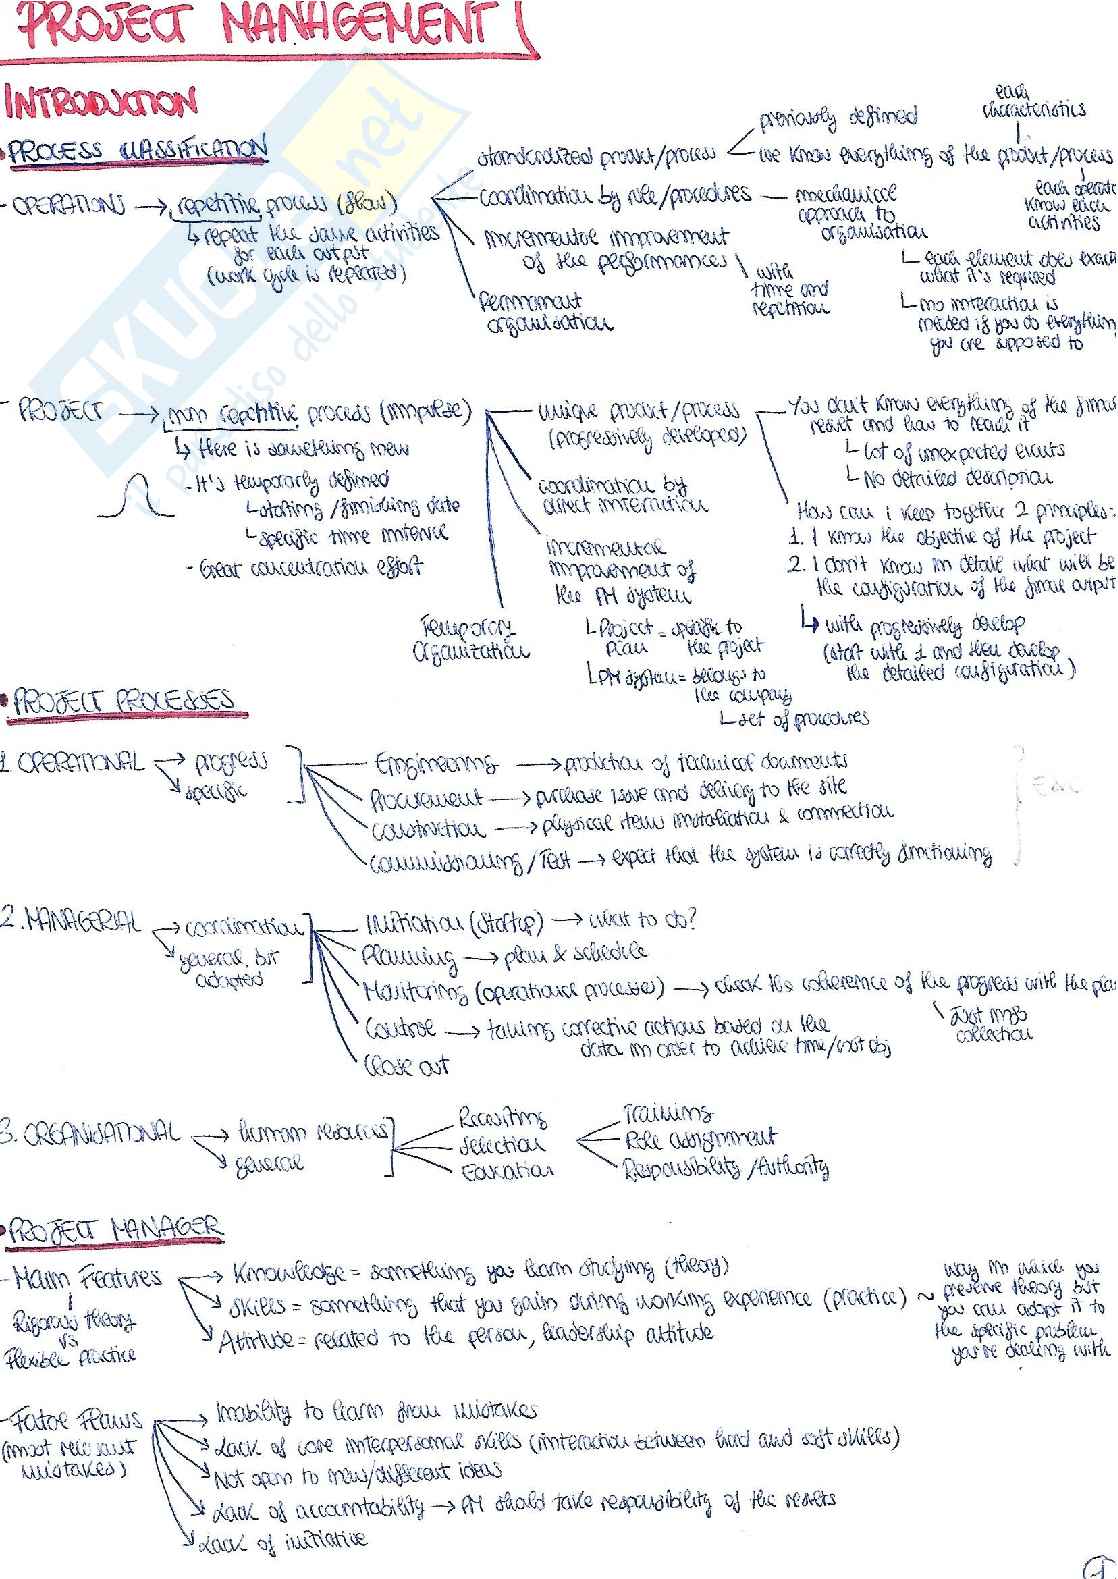 PROJECT MANAGEMENT
INTRODUCTION
• PROCESS CLASSIFICATION
SKUOLA.net
il paradiso dello studente
- OPERATIONS → repetitive process (flow)
↳ repeat the same activities
for each output
(work cycle is repeated)
standardized product/process
previously defined
we know everything of the product/process
each
characteristics
each operator
know each
activities
coordination by role/procedures — mechanical
approach to
organisation
each element does exactly
what it's required
no interaction is
needed if you do everything
you are supposed to
incremental improvement
of the performances
with
time and
repetition
Permanent
organisation
- PROJECT → non repetitive process (impulse)
↳ there is something new
- It's temporarly defined
starting/finishing date
specific time interval
- Great concentration effort
unique product/process
(progressively developed)
You don't know everything of the final
result and how to reach it
Lot of unexpected events
No detailed description
How can i keep together 2 principles:
1. I know the objective of the project
2. I don't know in detail what will be
the configuration of the final output
↳ with progressively develop
(start with 1 and then develop
the detailed configuration)
coordination by
direct interaction
incremental
improvement of
the PM system
Project = specific to
plan the project
PM system = belongs to
the company
set of procedures
Temporary
organization
• PROJECT PROCESSES
1. OPERATIONAL → progress
specific
Engineering → production of technical documents
Procurement → purchase issue and delivery to the site
Construction → physical items installation & connection
Commissioning/Test → expect that the system is correctly funtioning
2. MANAGERIAL → coordination
general, but
adapted
Initiation (startup) → what to do?
Planning → plan & schedule
Monitoring (operational processes) → check the coherence of the progress with the plan
just info
collection
Control → taking corrective actions based on the
data in order to achieve time/cost obj
Close out
3. ORGANISATIONAL → human resources
general
Recruiting
Selection
Education
Training
Role assignment
Responsibility/Authority
• PROJECT MANAGER
- Main Features
Rigorous theory
vs
Flexible practice
→ Knowledge = something you learn studying (theory)
→ Skills = something that you gain during working experience (practice) ~ way in which you
preserve theory but
you can adapt it to
the specific problem
you're dealing with
Attitude = related to the person, leadership attitude
- Fatal Flaws
(most relevant
mistakes)
→ Inability to learn from mistakes
→ Lack of core interpersonal skills (interaction between hard and soft skills)
Not open to new/different ideas
Lack of accountability → PM should take responsibility of the results
Lack of initiative
1